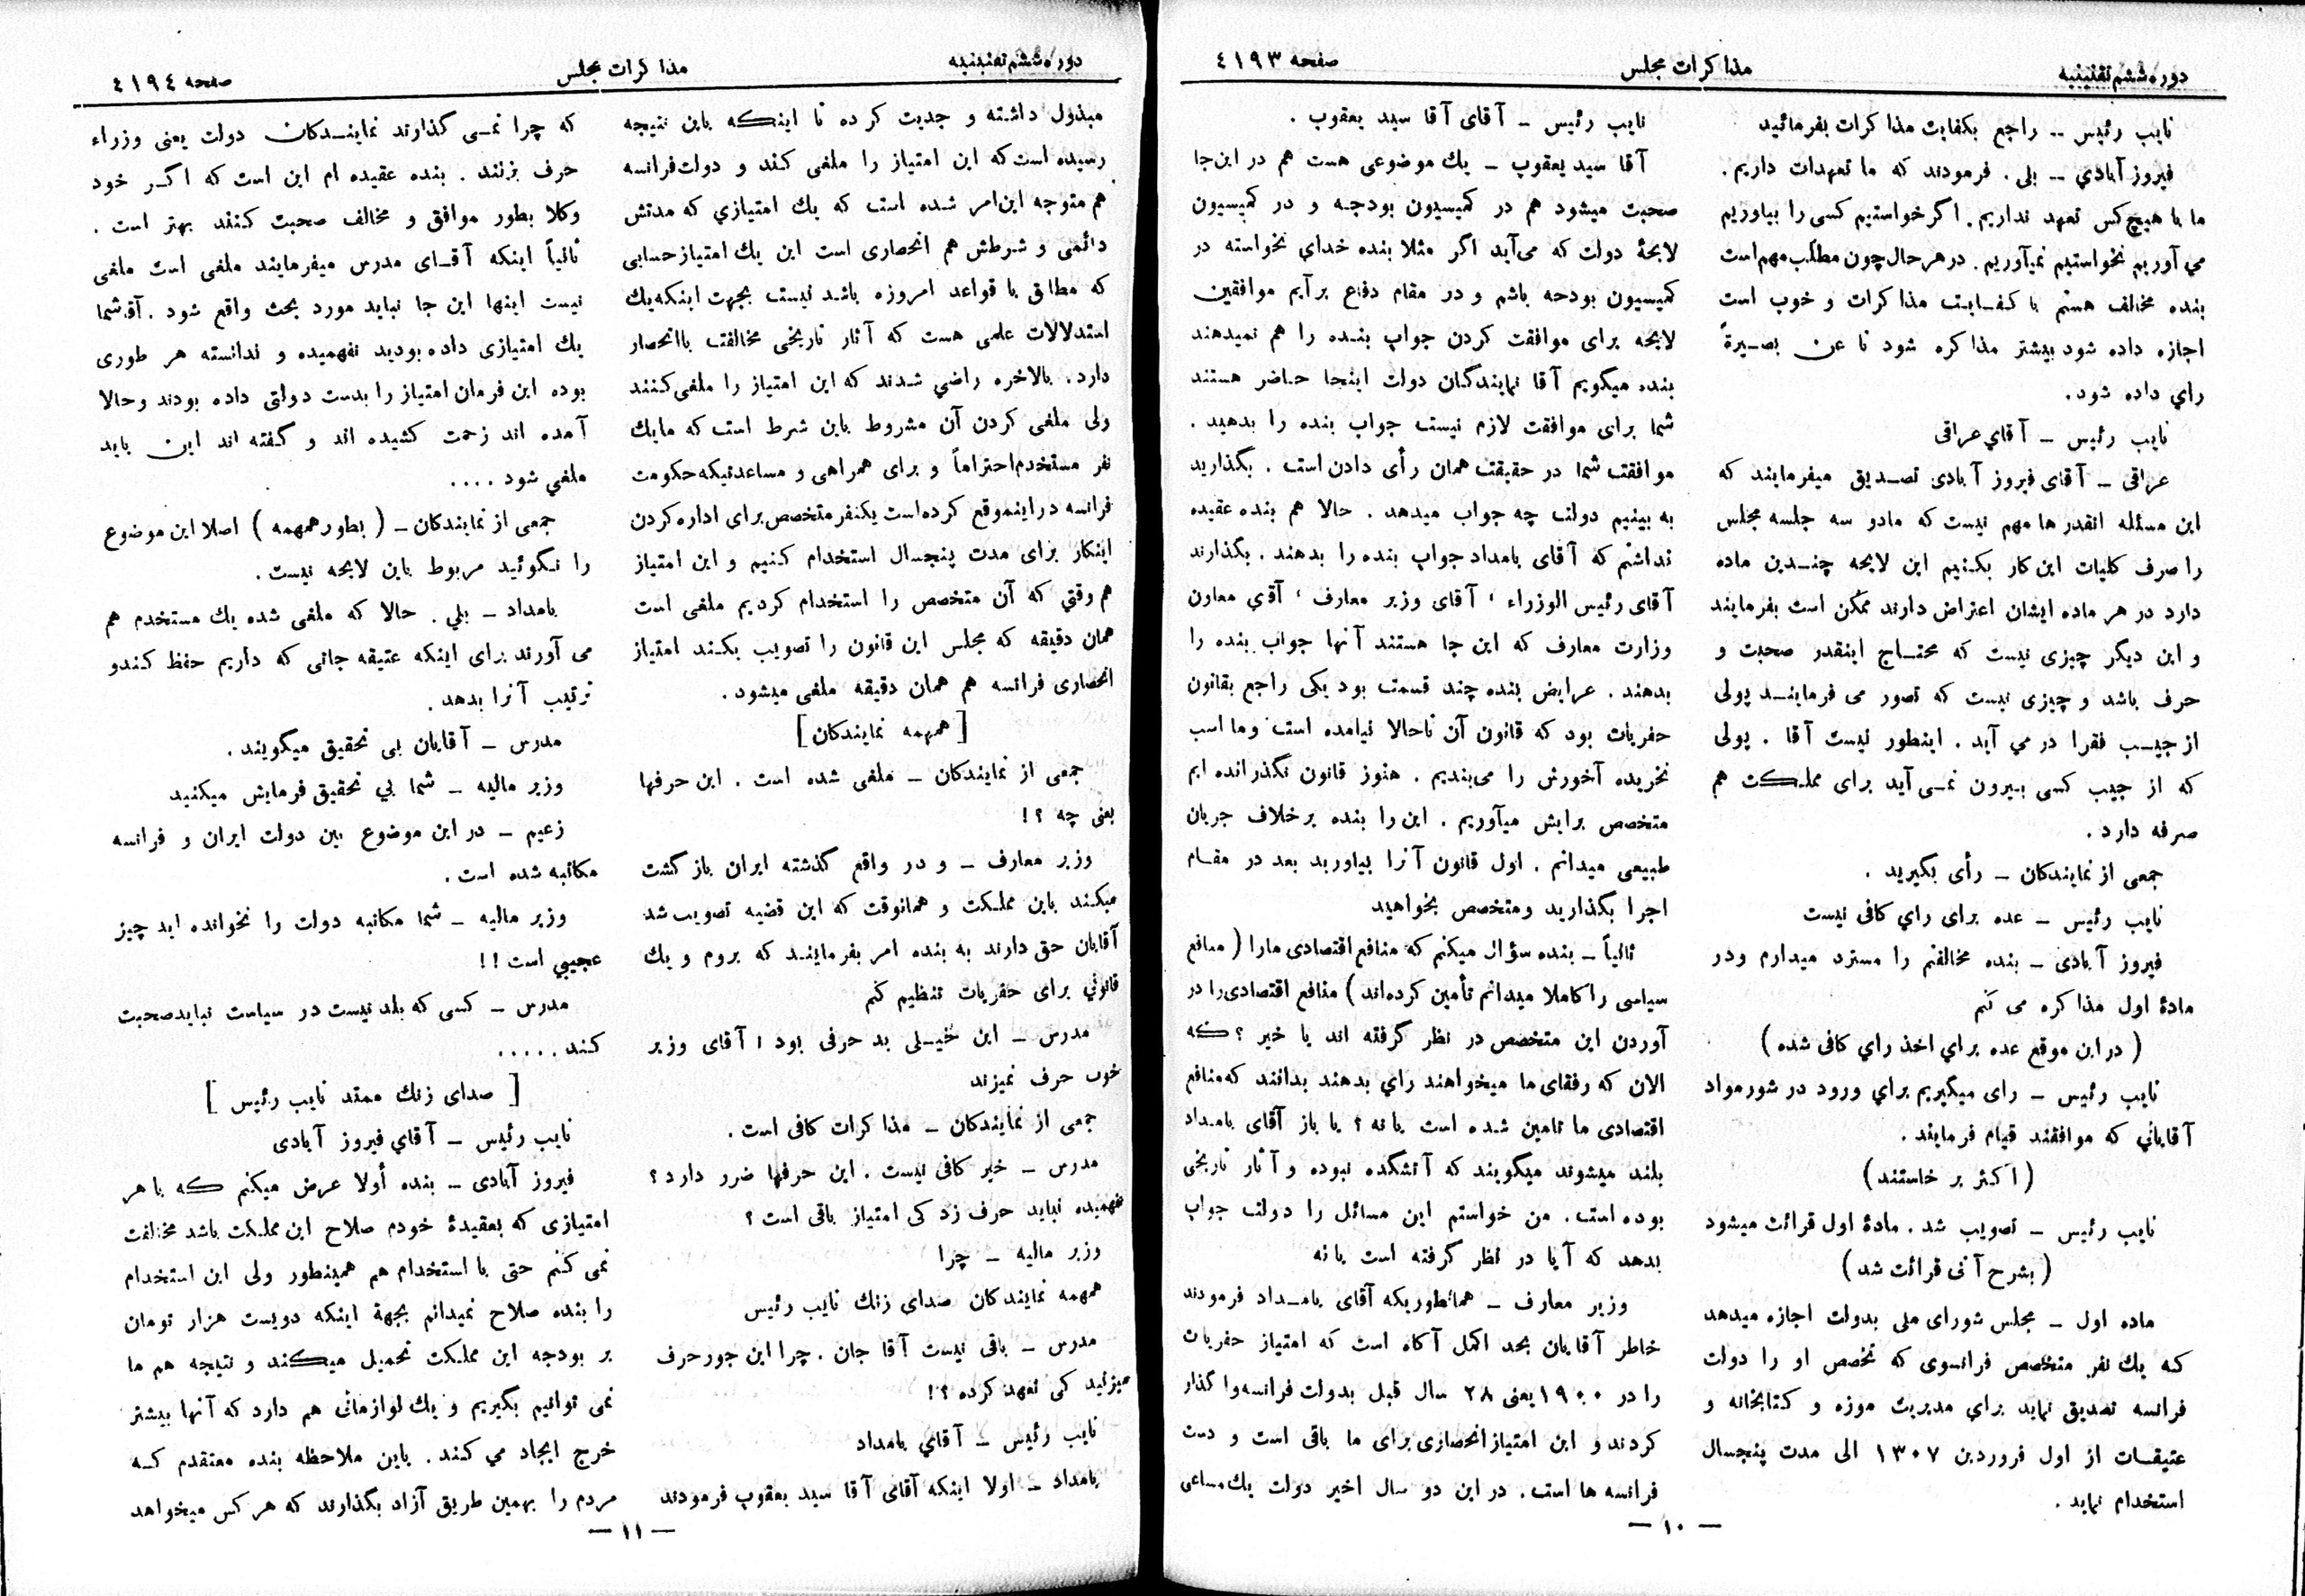 دوره ششم تقنینیه
مذاکرات مجلس
صفحه ٤١٩٣
نایب رئیس -- راجع بکفایت مذاکرات بفرمائید
فیروز آبادي -- بلی . فرمودند که ما تعهدات داریم .
ما با هیچ کس تعهد نداریم . اگر خواستیم کسی را بیاوریم
می آوریم نخواستیم نمیآوریم . در هر حال چون مطلب مهم است
بنده مخالف هستم با کفایت مذاکرات و خوب است
اجازه داده شود بیشتر مذاکره شود تا عن بصیرةً
راي داده شود .
نایب رئیس - آقاي عراقی
عراقی - آقای فیروز آبادی تصدیق میفرمایند که
این مسئله انقدر ها مهم نیست که مادو سه جلسه مجلس
را صرف کلیات این کار بکنیم این لایحه چندین ماده
دارد در هر ماده ایشان اعتراض دارند ممکن است بفرمایند
و این دیگر چیزی نیست که محتاج اینقدر صحبت و
حرف باشد و چیزی نیست که تصور می فرمایند پولی
از جیب فقرا در می آید . اینطور نیست آقا . پولی
که از جیب کسی بیرون نمی آید برای مملکت هم
صرفه دارد .
جمعی از نمایندکان - رأی بگیرید .
نایب رئیس - عده برای راي کافی نیست
فیروز آبادی - بنده مخالفتم را مسترد میدارم ودر
مادهٔ اول مذاکره می کنم
( در این موقع عده براي اخذ راي کافی شده )
نایب رئیس - رای میگیریم براي ورود در شور مواد
آقایانی که موافقند قیام فرمایند .
( اکثر بر خاستند )
نایب رئیس - تصویب شد . مادهٔ اول قرائت میشود
( بشرح آنی قرائت شد )
ماده اول - مجلس شورای ملی بدولت اجازه میدهد
که یك نفر متخصص فرانسوی که تخصص او را دولت
فرانسه تصدیق نماید براي مدیریت موزه و کتابخانه و
عتیقات از اول فروردین ١٣٠٧ الی مدت پنجسال
استخدام نماید .
نایب رئیس - آقای آقا سید یعقوب .
آقا سید یعقوب - یك موضوعی هست هم در این جا
صحبت میشود هم در کمیسیون بودجه و در کمیسیون
لایحهٔ دولت که می آید اگر مثلا بنده خدای نخواسته در
کمیسیون بودحه باشم و در مقام دفاع برآیم موافقین
لایحه برای موافقت کردن جواب بنده را هم نمیدهند
بنده میگویم آقا نمایندگان دولت اینجا حاضر هستند
شما برای موافقت لازم نیست جواب بنده را بدهید .
موافقت شما در حقیقت همان رأی دادن است . بگذارید
به بینیم دولت چه جواب میدهد . حالا هم بنده عقیده
نداشتم که آقای بامداد جواب بنده را بدهند . بگذارند
آقای رئیس الوزراء ، آقای وزیر معارف ، آقاي معاون
وزارت معارف که این جا هستند آنها جواب بنده را
بدهند . عرایض بنده چند قسمت بود یکی راجع بقانون
حفریات بود که قانون آن تاحالا نیامده است وما اسب
نخریده آخورش را می بندیم . هنوز قانون نگذرانده ایم
متخصص برایش میآوریم . این را بنده برخلاف جریان
طبیعی میدانم . اول قانون آنرا بیاورید بعد در مقام
اجرا بگذارید ومتخصص بخواهید
ثالیاً - بنده سؤال میکنم که منافع اقتصادی مارا ( منافع
سیاسی را کاملا میدانم تأمین کرده اند ) منافع اقتصادی را در
آوردن این متخصص در نظر گرفته اند یا خیر ؟ که
الان که رفقای ما میخواهند راي بدهند بدانند که منافع
اقتصادی ما تامین شده است یا نه ؟ یا باز آقای بامداد
بلند میشوند میگویند که آتشگده نبوده و آثار تاریخی
بوده است . من خواستم این مسائل را دولت جواب
بدهد که آیا در نظر گرفته است یا نه
وزیر معارف - همانطوریکه آقای بامداد فرمودند
خاطر آقایان بحد اکمل آکاه است که امتیاز حفریات
را در ١٩٠٠ یعنی ٢٨ سال قبل بدولت فرانسه واگذار
کردند و این امتیاز انحصاری برای ما باقی است و دست
فرانسه ها است . در این دو سال اخیر دولت یك مساعی
- ١٠ -
دوره ششم تقنینیه
مذاکرات مجلس
صفحه ٤١٩٤
مبذول داشته و جدیت کرده تا اینکه باین نتیچه
رسیده است که این امتیاز را ملغی کند و دولت فرانسه
هم متوجه این امر شده است که یك امتیازي که مدتش
دائمی و شرطش هم انحصاری است این یك امتیاز حسابی
که مطابق با قواعد امروزه باشد نیست بجهت اینکه یك
استدلالات علمی هست که آثار تاریخی مخالفت باانحصار
دارد . بالاخره راضي شدند که این امتیاز را ملغی کنند
ولی ملغی کردن آن مشروط باین شرط است که ما یك
نفر مستخدم احتراماً و برای همراهی و مساعدتیکه حکومت
فرانسه در اینموقع کرده است یکنفر متخصص برای اداره کردن
اینکار برای مدت پنجسال استخدام کنیم و این امتیاز
هم وقتي که آن متخصص را استخدام کردیم ملغی است
همان دقیقه که مجلس این قانون را تصویب بکند امتیاز
انحصاری فرانسه هم همان دقیقه ملغی میشود .
[ همهمه نمایندکان ]
جمعی از نمایندکان - ملغی شده است . این حرفها
یعنی چه ؟ !
وزیر معارف - و در واقع گذشته ایران باز کشت
میکند باین مملکت و همانوقت که این قضیه تصویب شد
آقایان حق دارند به بنده امر بفرمایند که بروم و یك
قانوني برای حفریات تنظیم کنم
مدرس - این خیلی بد حرفی بود ! آقای وزیر
خوب حرف نمیزند
جمعی از نمایندکان - مذاکرات کافی است .
مدرس - خیر کافی نیست . این حرفها ضرر دارد ؟
نفهمیده نباید حرف زد کی امتیاز باقی است ؟
وزیر مالیه - چرا
همهمه نمایندکان صداي زنك نایب رئیس
مدرس - باقی نیست آقا جان . چرا این جور حرف
میزنید کی تعهد کرده ؟ !
نایب رئیس - آقاي بامداد
بامداد - اولا اینکه آقای آقا سید یعقوب فرمودند
که چرا نمی گذارند نمایندکان دولت یعنی وزراء
حرف بزنند . بنده عقیده ام این است که اگر خود
وکلا بطور موافق و مخالف صحبت کنند بهتر است .
ثانیاً اینکه آقای مدرس میفرمایند ملغی است ملغی
نیست اینها این جا نباید مورد بحث واقع شود . آقا شما
یك امتیازی داده بودید نفهمیده و ندانسته هر طوری
بوده این فرمان امتیاز را بدست دولتی داده بودند وحالا
آمده اند زحمت کشیده اند و گفته اند این باید
ملغي شود ....
جمعی از نمایندکان - ( بطور همهمه ) اصلا این موضوع
را نگوئید مربوط باین لایحه نیست .
بامداد - بلي . حالا که ملغی شده یك مستخدم هم
می آورند برای اینکه عتیقه جاتی که داریم حفظ کندو
ترتیب آنرا بدهد .
مدرس - آقایان بی تحقیق میگویند .
وزیر مالیه - شما بي تحقیق فرمایش میکنید
زعیم - در این موضوع بین دولت ایران و فرانسه
مکاتبه شده است .
وزیر مالیه - شما مکاتبه دولت را نخوانده اید چیز
عجیبي است ! !
مدرس - کسی که بلد نیست در سیاست نباید صحبت
کند .....
[ صدای زنك ممتد نایب رئیس ]
نایب رئیس - آقاي فیروز آبادی
فیروز آبادی - بنده أولا عرض میکنم که با هر
امتیازی که بعقیدهٔ خودم صلاح این مملکت باشد مخالفت
نمی کنم حتی با استخدام هم همینطور ولی این استخدام
را بنده صلاح نمیدانم بجهة اینکه دویست هزار تومان
بر بودجه این مملکت تحمیل میکند و نتیجه هم ما
نمی توانیم بگیریم و یك لوازماتی هم دارد که آنها بیشتر
خرج ایجاد می کند . باین ملاحظه بنده معتقدم که
مردم را بهمین طریق آزاد بگذارند که هر کس میخواهد
- ١١ -